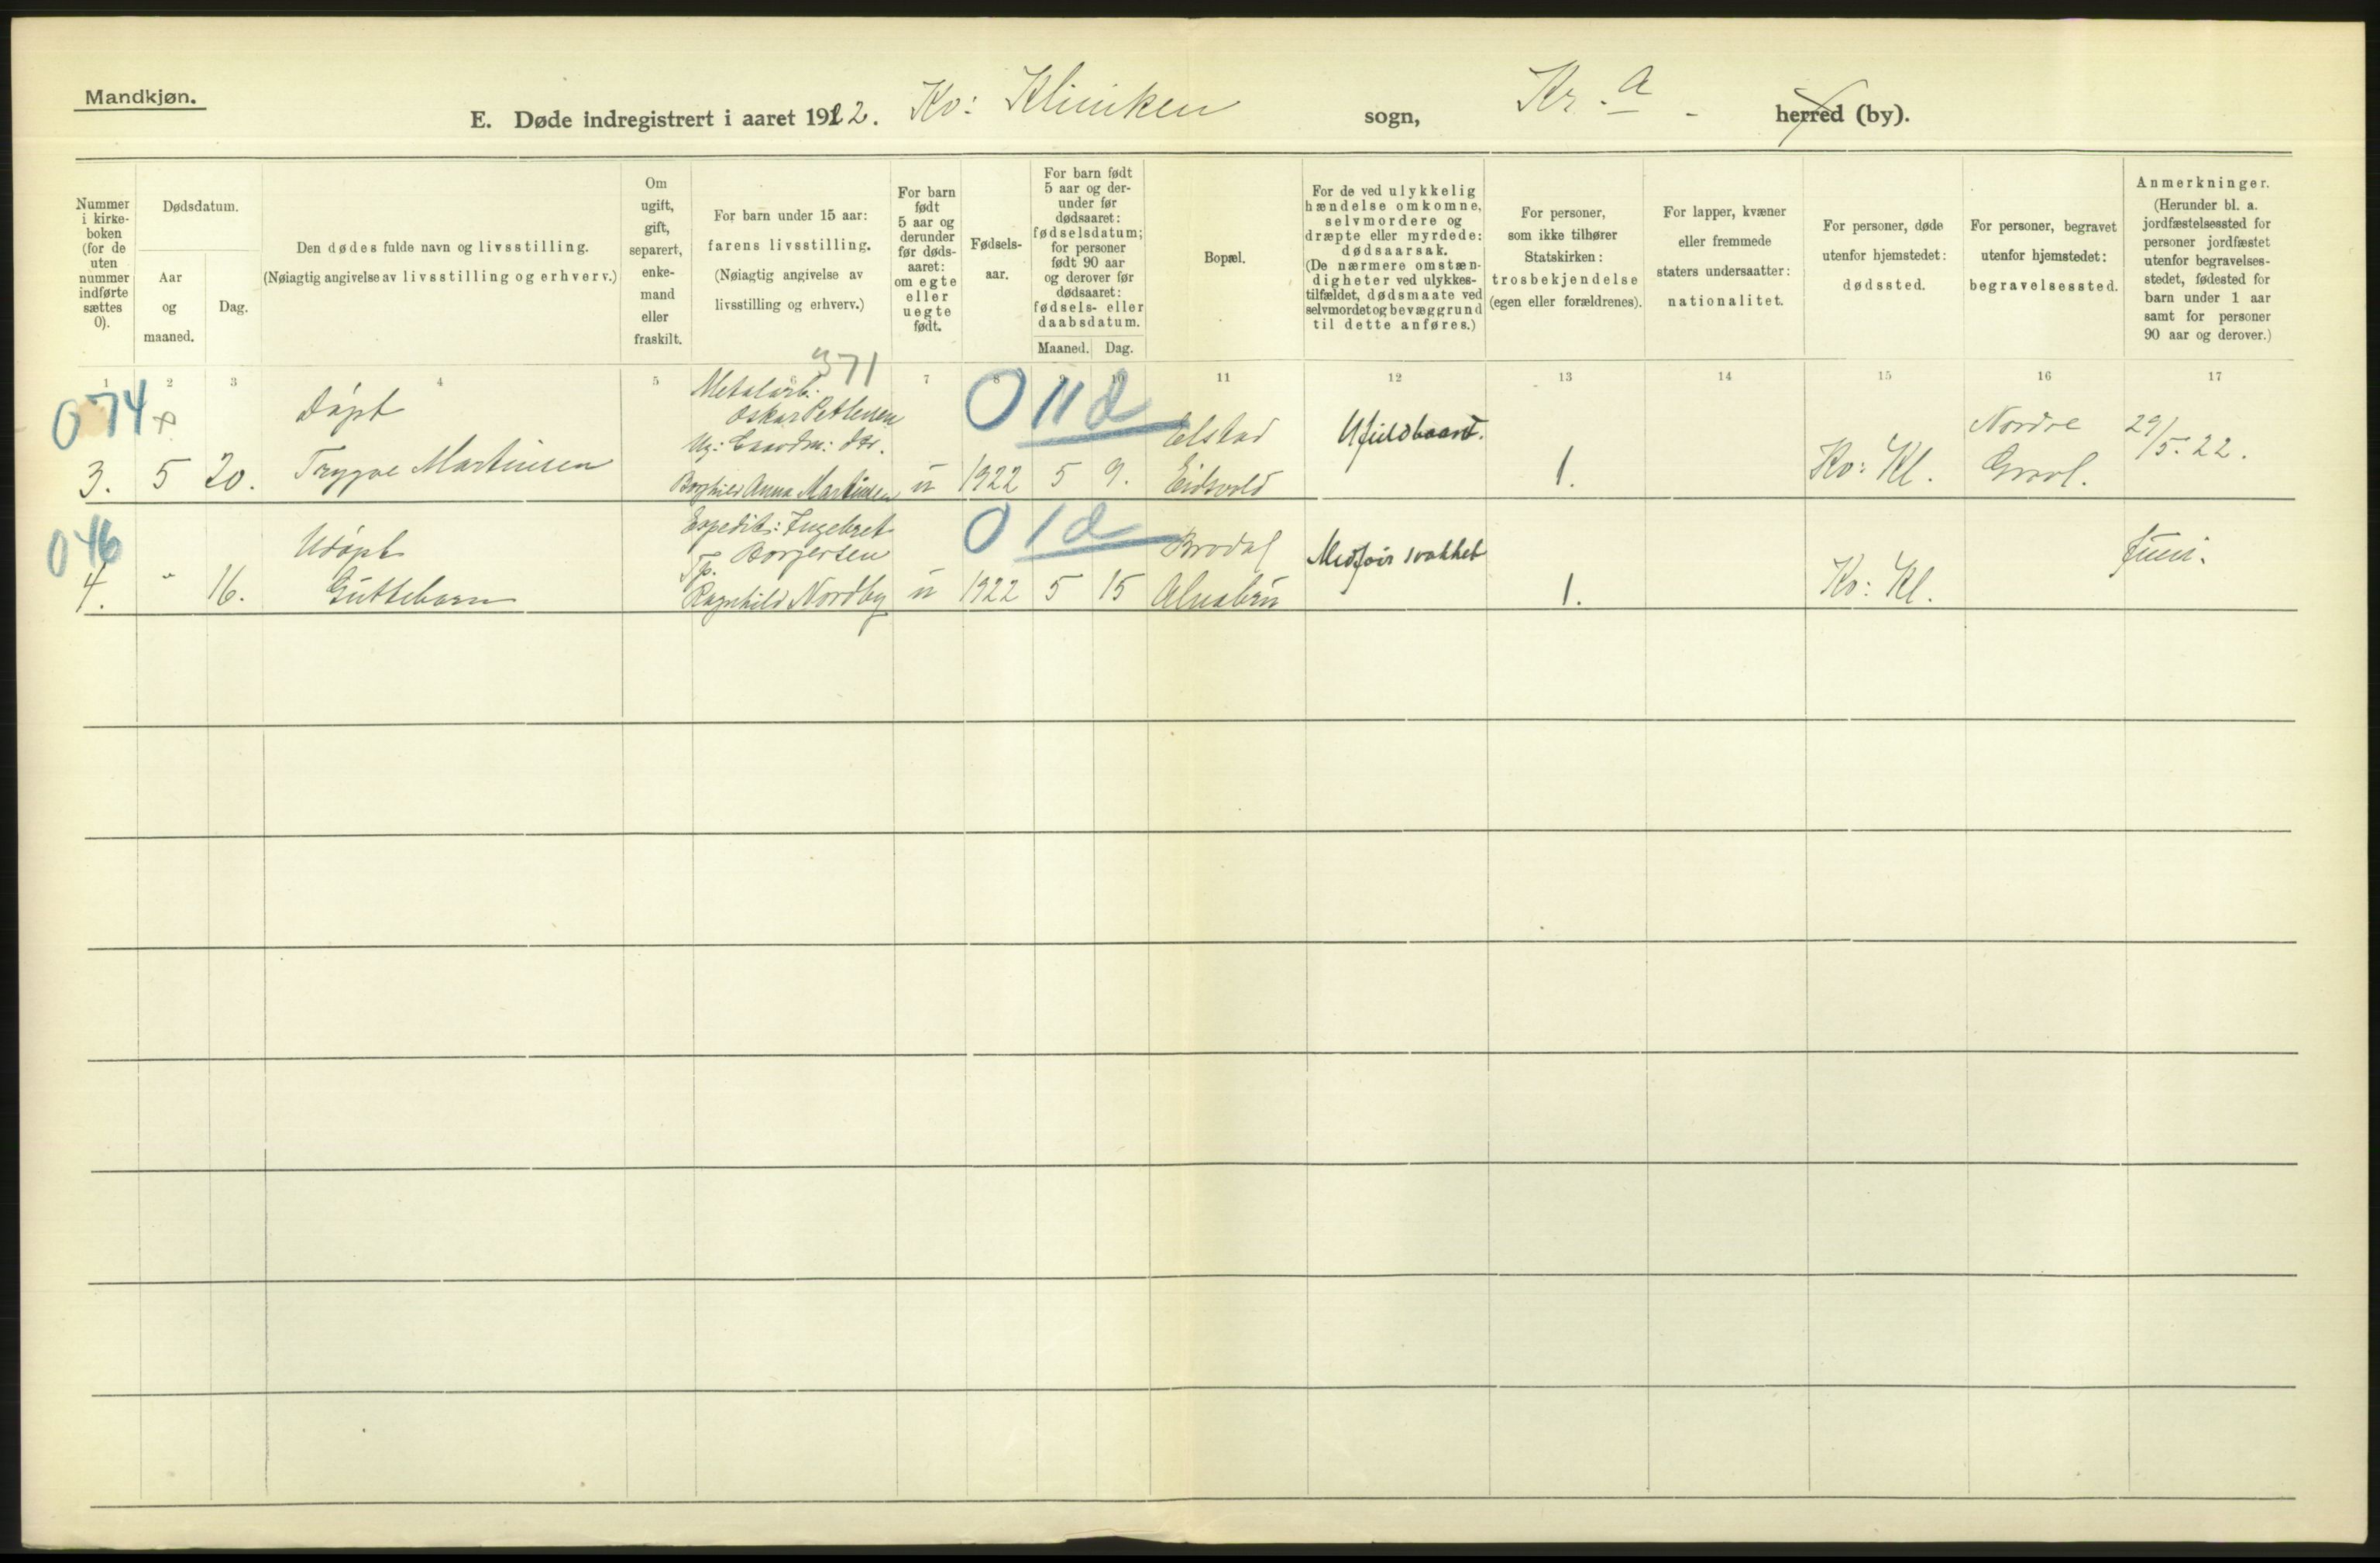 Mandkjøn.
E. Døde indregistrert i aaret 1922. Kv: Kliniken sogn, Kr.a - herred (by).
Nummer
i kirke-
boken
(for de
uten
nummer
indførte
sættes
0).
Dødsdatum.
Aar
og
maaned.
Dag.
Den dødes fulde navn og livsstilling.
(Nøiagtig angivelse av livsstilling og erhverv.)
Om
ugift,
gift,
separert,
enke-
mand
eller
fraskilt.
For barn under 15 aar:
farens livsstilling.
(Nøiagtig angivelse av
livsstilling og erhverv.)
For barn
født
5 aar og
derunder
før døds-
aaret:
om egte
eller
uegte
født.
Fødsels-
aar.
For barn født
5 aar og der-
under før
dødsaaret:
fødselsdatum;
for personer
født 90 aar
og derover før
dødsaaret:
fødsels- eller
daabsdatum.
Maaned. Dag.
Bopæl.
For de ved ulykkelig
hændelse omkomne,
selvmordere og
dræpte eller myrdede:
dødsaarsak.
(De nærmere omstæn-
digheter ved ulykkes-
tilfældet, dødsmaate ved
selvmordet og bevæggrund
til dette anføres.)
For personer,
som ikke tilhører
Statskirken:
trosbekjendelse
(egen eller forældrenes).
For lapper, kvæner
eller fremmede
staters undersaatter:
nationalitet.
For personer, døde
utenfor hjemstedet:
dødssted.
For personer, begravet
utenfor hjemstedet:
begravelsessted.
Anmerkninger.
(Herunder bl. a.
jordfæstelsessted for
personer jordfæstet
utenfor begravelses-
stedet, fødested for
barn under 1 aar
samt for personer
90 aar og derover.)
1 2 3 4 5 6 7 8 9 10 11 12 13 14 15 16 17
371
074
3. 5 20.
Døpt
Trygve Martinsen
Metalarb.
Oskar Pettersen
Ug:
Borghild Anna Martinsen
u 1922 5 9.
011d
Elstad
Eidsvold
Ufuldbaaret.
1.
Kv: Kl.
Nordre
Gravl.
29/5. 22.
046
4. " 16.
Udøpt
Guttebarn
Expedit: Ingebret
Borgersen
Tp.
Ragnhild Nordby
u 1922 5 15
01d
Brodal
Alnabru
Medføir svakhet
1.
Kv: Kl.